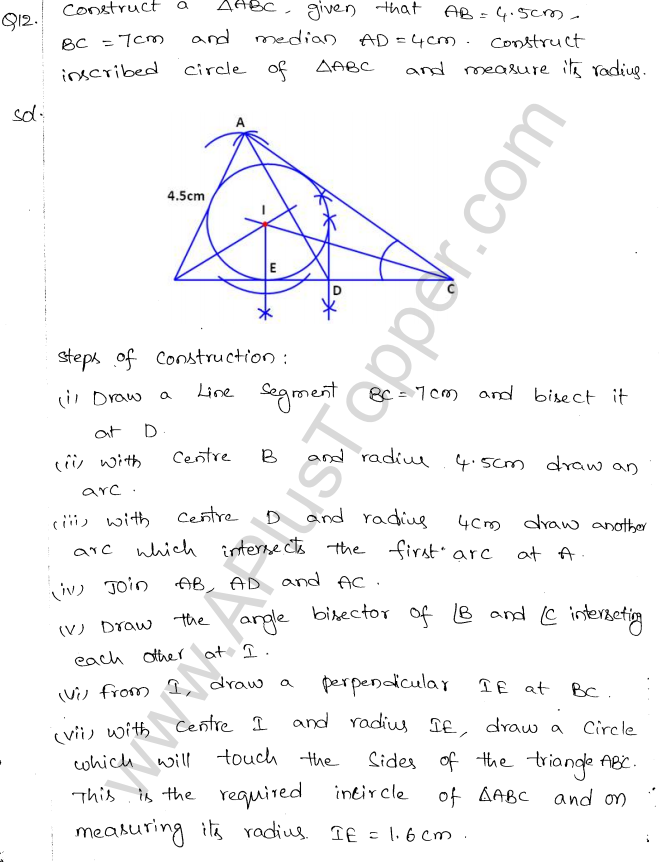 Q12. Construct a ΔABC, given that AB = 4.5cm,
BC = 7cm and median AD = 4cm. Construct
inscribed circle of ΔABC and measure its radius.
Sol.
A
4.5cm
I
E
D
C
Steps of Construction:
(i) Draw a Line Segment BC = 7cm and bisect it
at D.
(ii) with Centre B and radius 4.5cm draw an
arc.
(iii) with Centre D and radius 4cm draw another
arc which intersects the first arc at A.
(iv) Join AB, AD and AC.
(v) Draw the angle bisector of ∠B and ∠C interseting
each other at I.
(vi) from I, draw a perpendicular IE at BC.
(vii) with Centre I and radius IE, draw a Circle
which will touch the Sides of the triangle ABC.
This is the required incircle of ΔABC and on
measuring its radius IE = 1.6cm.
www.APlusTopper.com